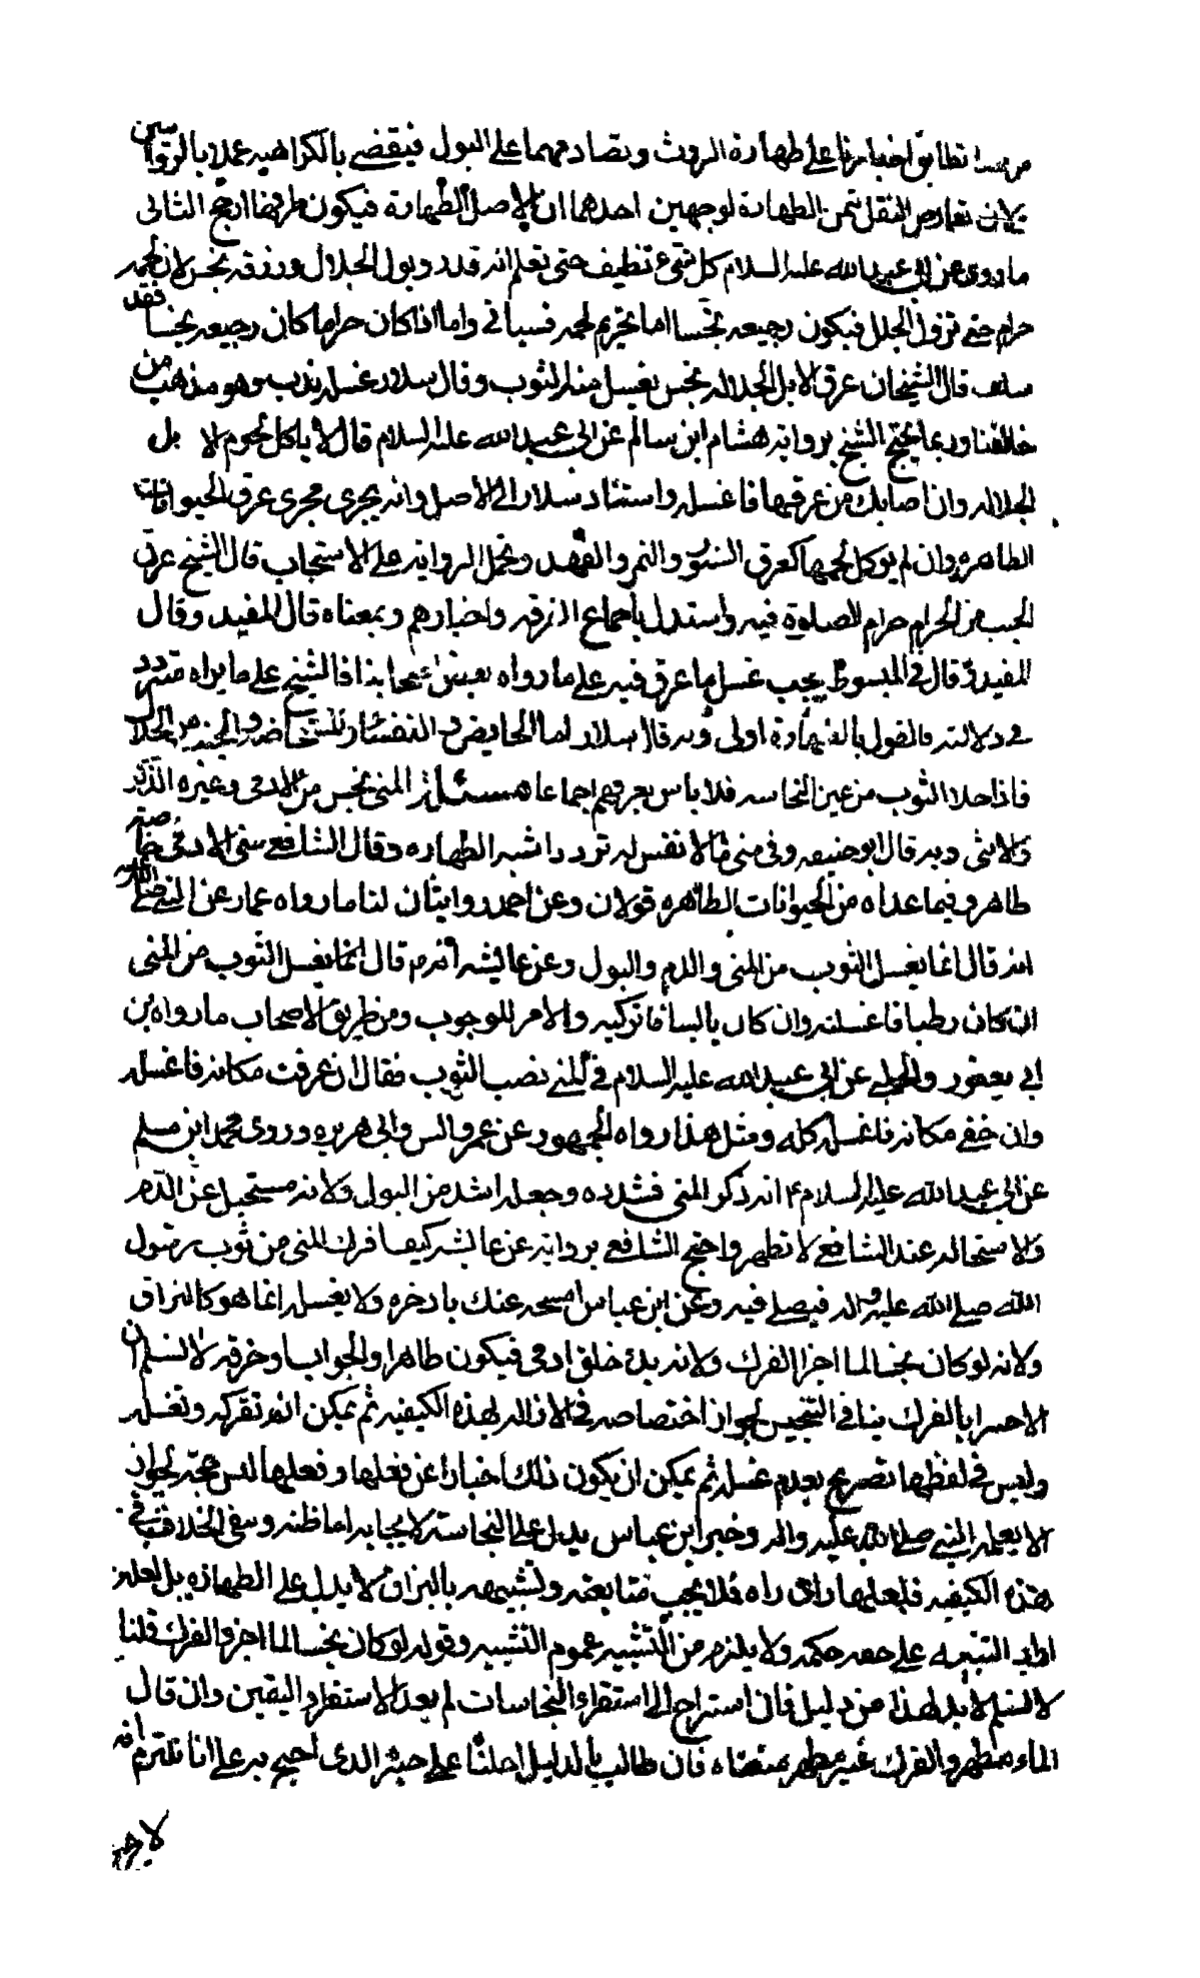 تطابق اخبارنا على طهارة الروث وتصادمهما على البول فيقضي بالكراهية عملا بالروايتين
لان تعارض النقل ثمر الطهارة لوجهين احدهما ان الاصل الطهارة فيكون طرفها ارجح الثاني
ما روي عن ابي عبد الله عليه السلام كل شيء نظيف حتى تعلم انه قذر وبول الجلال وذرقه نجس لان لحمه
حرام حتى تزول الجلل فيكون رجيعه نجسا اما تحريم لحمه فسياتي واما اذا كان حراما كان رجيعه نجسا فقد
سلف قال الشيخان عرق الابل الجلاله نجس يغسل منه الثوب وقال سلار غسله ندب وهو مذهب من
خالفنا وربما يحتج الشيخ برواية هشام ابن سالم عن ابي عبد الله عليه السلام قال لا ياكل لحوم الا بل
الجلاله وان اصابك من عرقها فاغسله واستناد سلار الى الاصل وانه يجري مجرى عرق الحيوانات
الطاهره وان لم يوكل لحمها كعرق السنور والنمر والفهد وتحمل الرواية على الاستحباب قال الشيخ عرق
الجنب من الحرام حرام الصلوة فيه واستدل باجماع الفرقه واخبارهم وبمعناه قال المفيد وقال
المفيد قال في المبسوط يجب غسل ما عرق فيه على ما رواه بعض اصحابنا فالشيخ على ما نراه متردد
في دلالته فالقول بالطهارة اولى وبه قال سلار اما الحايض والنفساء والمستحاضه والجنب من الحلال
فاذا خلا الثوب من عين النجاسه فلا باس بعرقهم اجماعا مسئلة المني نجس من الادمي وغيره الذكر
والانثى وبه قال ابو حنيفه وفي مني ما لا نفس له تردد اشبه الطهاره وقال الشافعي مني الادمي خاصة
طاهر وفيما عداه من الحيوانات الطاهره قولان وعن احمد روايتان لنا ما رواه عمار عن النبي صلى الله
انه قال انما يغسل الثوب من المني والدم والبول وعن عايشه انه م قال انما يغسل الثوب من المني
ان كان رطبا فاغسليه وان كان يابسا فاتركيه والامر للوجوب ومن طريق الاصحاب ما رواه بن
ابي يعفور والحلبي عن ابي عبد الله عليه السلام في المني نصب الثوب فقال ان عرفت مكانه فاغسله
وان خفي مكانه فاغسله كله ومثل هذا رواه الجمهور عن عمر وانس وابي هريره وروى محمد ابن مسلم
عن ابي عبد الله عليه السلام انه ذكر المني فشدده وجعله اشد من البول ولانه مستحيل عن الدم
والاستحاله عند الشافعي لا تطهر واحتج الشافعي برواية عن عايشه كيف افرك المني من ثوب رسول
الله صلى الله عليه واله فيصلي فيه وعن ابن عباس امسحه عنك باذخره ولا يغسل انما هو كالبزاق
ولانه لو كان نجسا لما اجزا الفرك ولانه بدئ خلق ادمي فيكون طاهرا والجواب لا نسلم ان
بالفرك ينافي التنجيس لجواز اختصاصه في الازاله بهذه الكيفيه ثم يمكن انه تفركه وتغسله
وليس في لفظها تصريح بعدم غسله ثم يمكن ان يكون ذلك اخبارا عن فعلها وفعلها ليس حجة لجواز
الا يعلم النبي صلى الله عليه واله وخبر ابن عباس يدل على النجاسة لايجابه اماطته وبقي الخلاف في
هذه الكيفيه فلعلها راي راه فلا يجب متابعته وتشبيهه بالبزاق لا يدل على الطهاره بل لعله
على حكمه ولا يلزم من التشبيه عموم التشبيه وقوله لو كان نجسا لما اجزء الفرك قلنا
لا نسلم لا بد لهذا من دليل فان استراح الى استقراء النجاسات لم يعد الاستقراء اليقين وان قال
الماء مطهر والفرك غير مطهر فان طالب بالدليل احلنا على خبره الذي احتج به على انا نلتزم انه